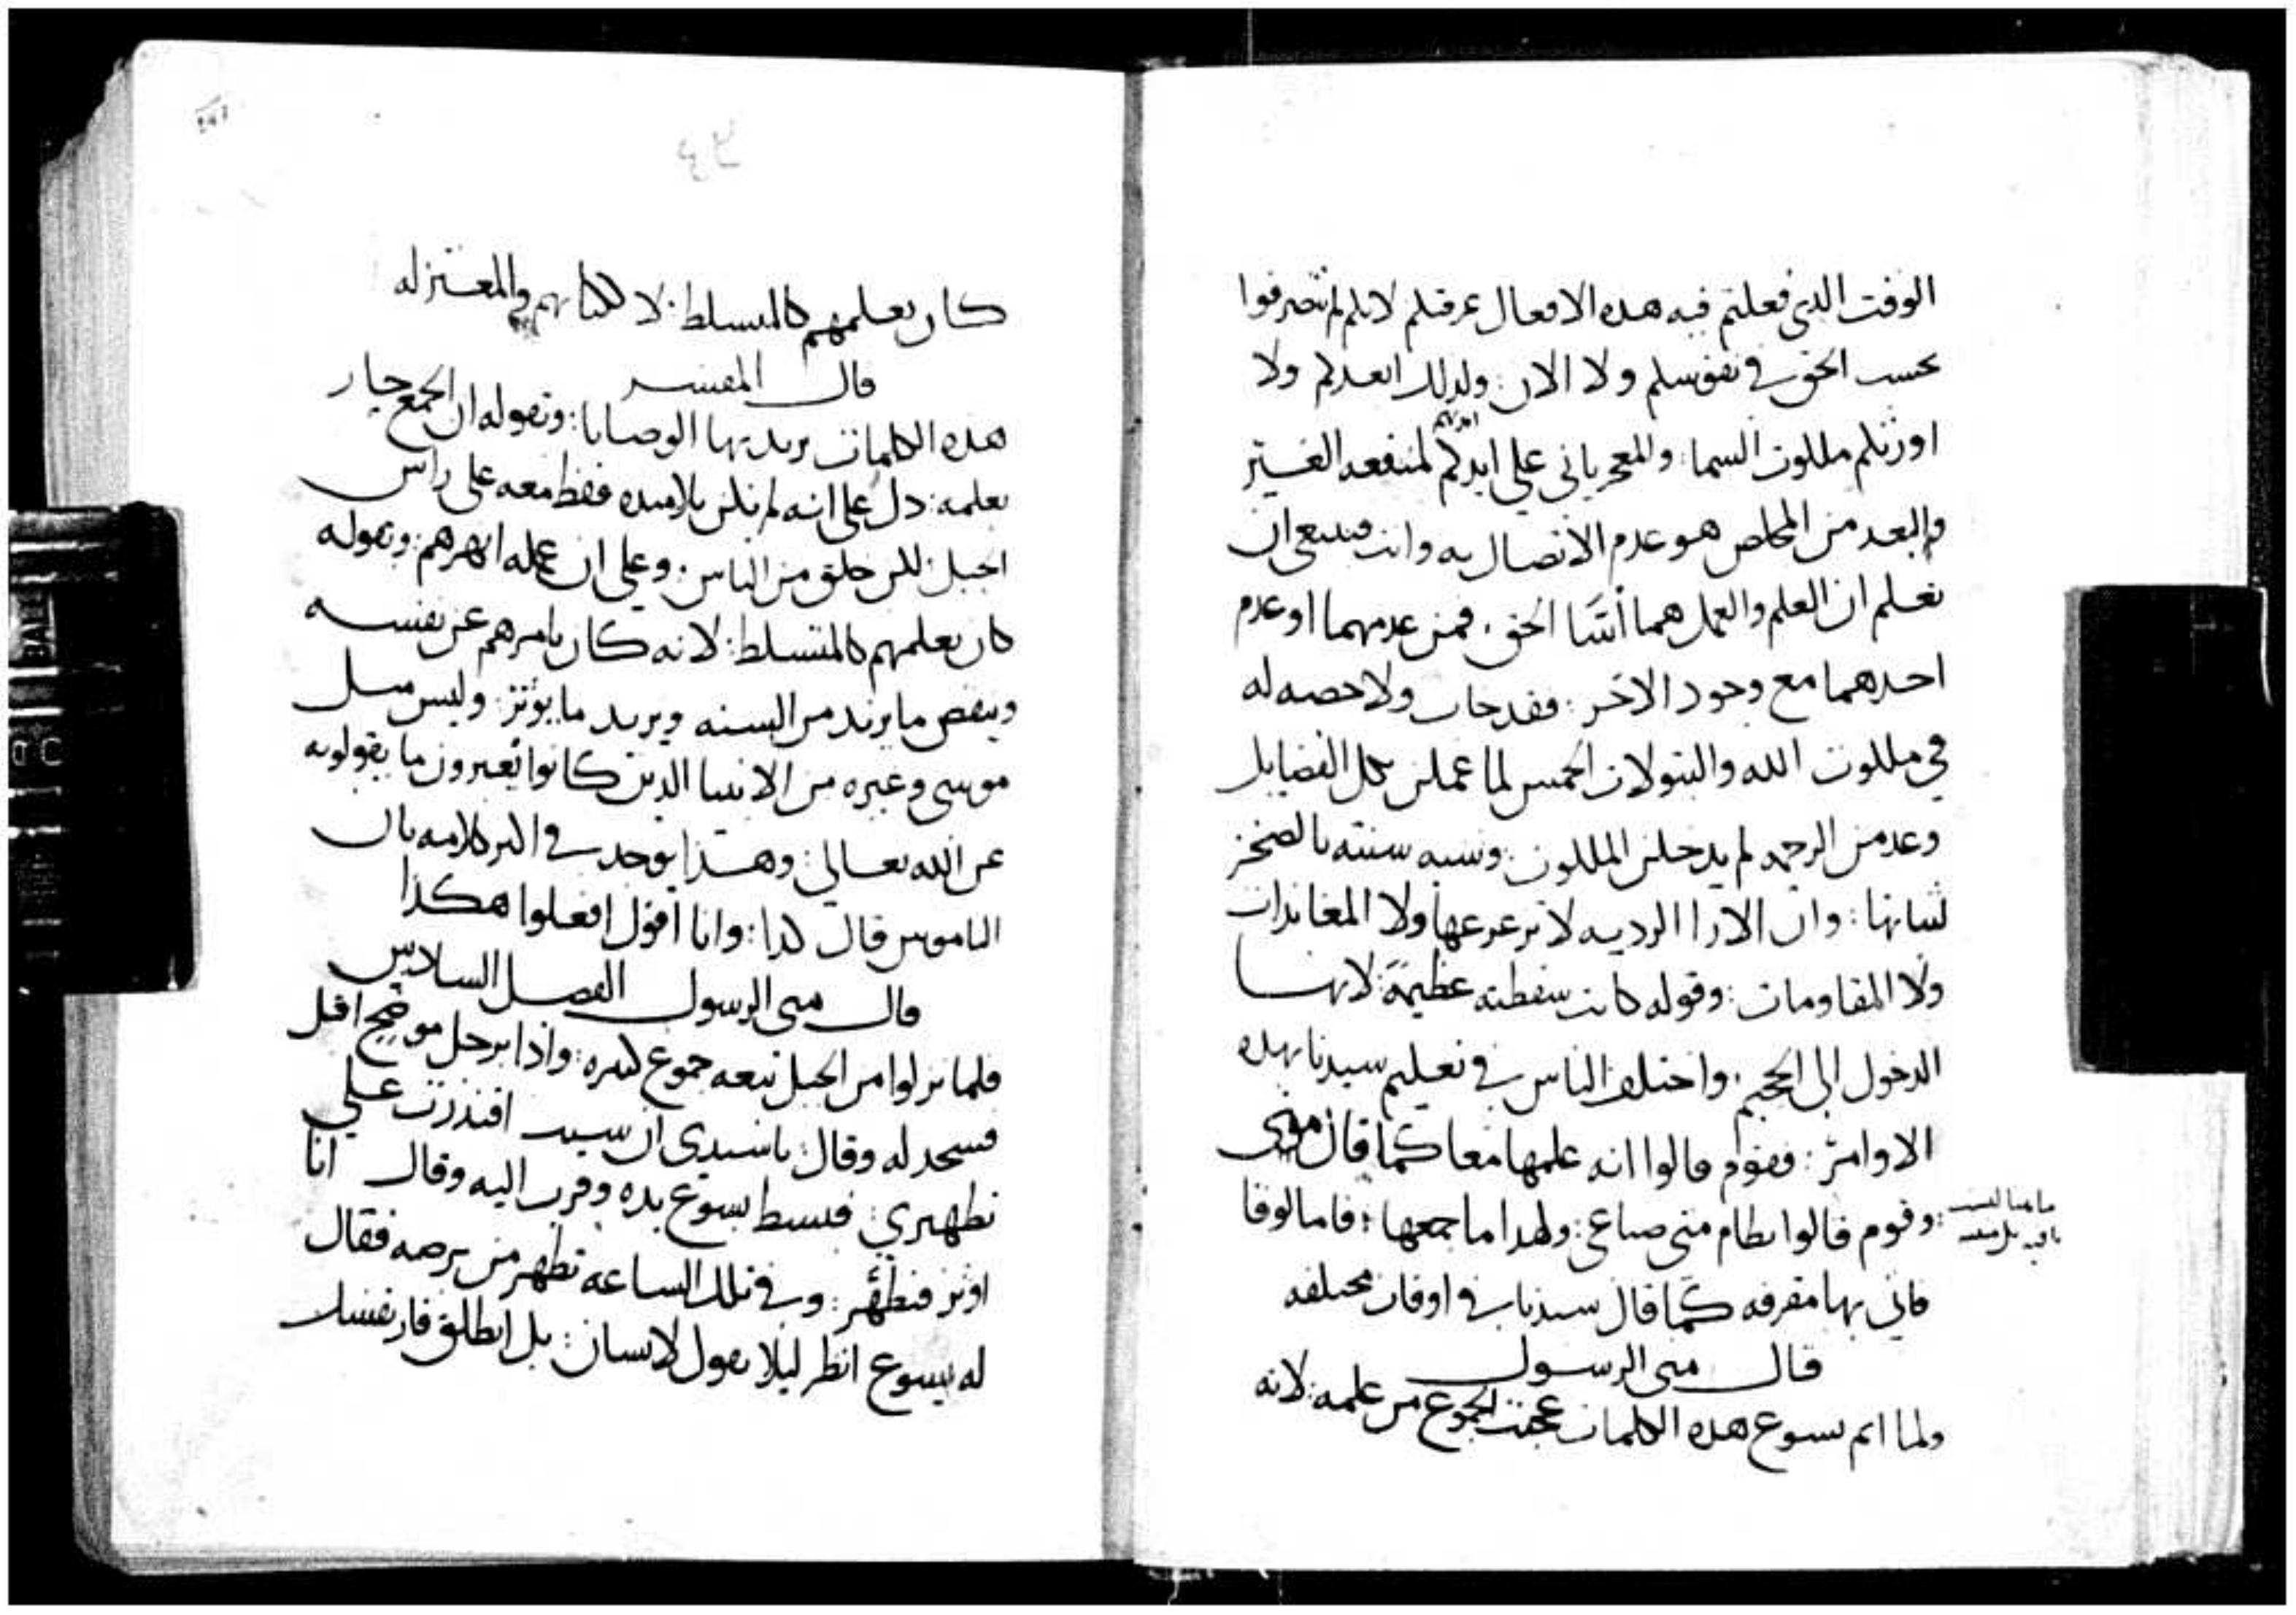 الوقت الذي فعلتم فيه هذه الافعال عرفتكم لانكم لم تتصرفوا
بحسب الحق في نفوسكم ولا الان : ولذلك ابعدكم ولا
اورثكم ملكوت السما : والمعجز ياتي على ايديكم لمنفعه الغير
والبعد من المخلص هو عدم الاتصال به وانت فينبغي ان
تعلم ان العلم والعمل هما اُسّا الحق . فمن عدمهما او عدم
احدهما مع وجود الاخر : فقد خاب ولا حصه له
في ملكوت الله والبتولات الخمس لما عملن بكل الفضايل
وعدمن الرحمه لم يدخلن الملكوت : وشبه سنته بالصخر
لثباتها : وان الارا الرديه لا تزعزعها ولا المعاندات
ولا المقاومات : وقوله كانت سقطته عظيمة : لانها
الدخول الى الجحيم . واختلف الناس في تعليم سيدنا بهذه
الاوامر : فقوم قالوا انه علمها معا كما قال متى
وقوم قالوا نظام متى صناعي : ولهذا ما جمعها : فاما لوقا
فاتى بها مفرقه كما قال سيدنا في اوقات مختلفه
قال متى الرسول
ولما اتم يسوع هذه الكلمات عجبت الجموع من علمه : لانه
كان يعلمهم كالمسلط : لا ككتابهم والمعتزله
قال المفسر
هذه الكلمات يريد بها الوصايا : وبقوله ان الجمع حار
بعلمه : دل على انه لم يكن تلاميذه فقط معه على راس
الجبل : لكن خلق من الناس : وعلى ان عمله ابهرهم : وبقوله
كان يعلمهم كالمتسلط : لانه كان يامرهم عن نفسه
وينقص ما يريد من السنه ويزيد ما يوثر : وليس مثل
موسى وغيره من الانبيا الذين كانوا يُعبرون ما يقولونه
عن الله تعالى : وهذا يوجد في اكثر كلامه بان
الناموس قال كذا : وانا اقول افعلوا هكذا
قال متى الرسول الفصل السادس
فلما نزلوا من الجبل تبعه جموع كثيره : واذا برجل موضح اقبل
فسجد له وقال : يا سيدي ان شيت اقتدرت على
تطهيري : فبسط يسوع يده وقرب اليه وقال انا
اوثر فتطهّر : وفي تلك الساعه تطهر من برصه فقال
له يسوع انظر ليلا تقول لانسان : بل انطلق فار نفسك